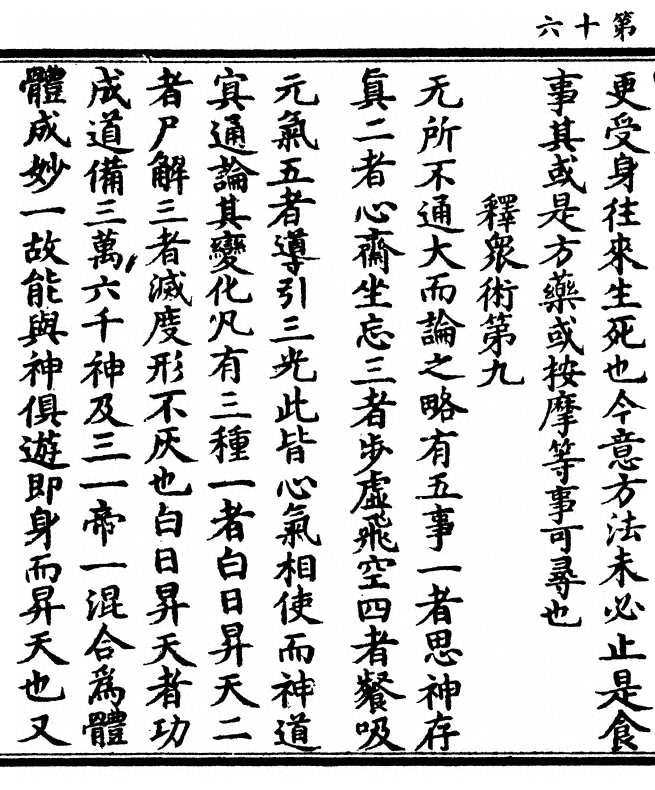 第十六
更受身往來生死也今意方法未必止是食
事其或是方藥或按摩等事可尋也
釋眾術第九
无所不通大而論之略有五事一者思神存
真二者心齋坐忘三者步虛飛空四者餐吸
元氣五者導引三光此皆心氣相使而神道
冥通論其變化凡有三種一者白日昇天二
者尸解三者滅度形不灰也白日昇天者功
成道備三萬六千神及三一帝一混合為體
體成妙一故能與神俱遊即身而昇天也又